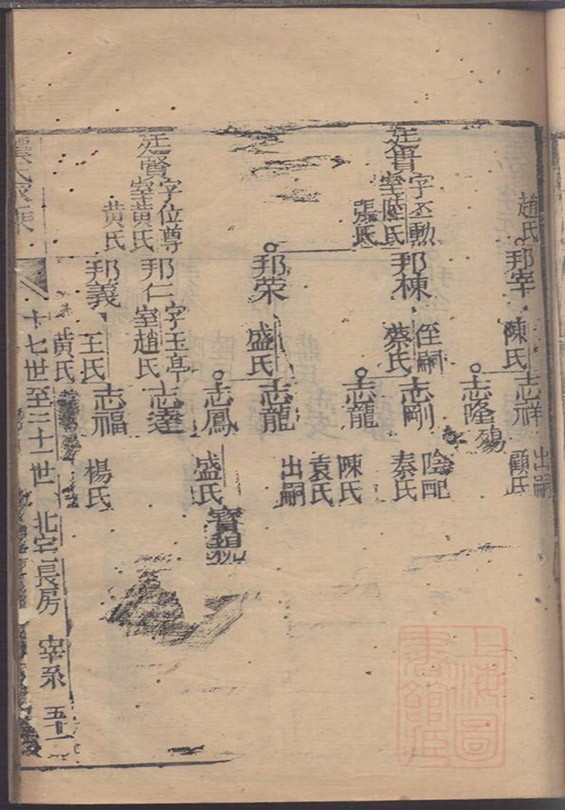 趙氏
邦宰
陳氏
志祥
出嗣
顧氏
志隆
殤
廷貴
字丕勳
室陸氏
張氏
邦棟
侄嗣
蔡氏
志剛
陰配
秦氏
志龍
陳氏
袁氏
邦荣
盛氏
志龍
出嗣
志鳳
盛氏
寶觀
廷賢
字位尊
室黄氏
黄氏
邦仁
字玉亭
室趙氏
志達
邦義
王氏
黄氏
志福
楊氏
十七世至二十一世
北宅長房
宰系
五十一
上海圖書館藏